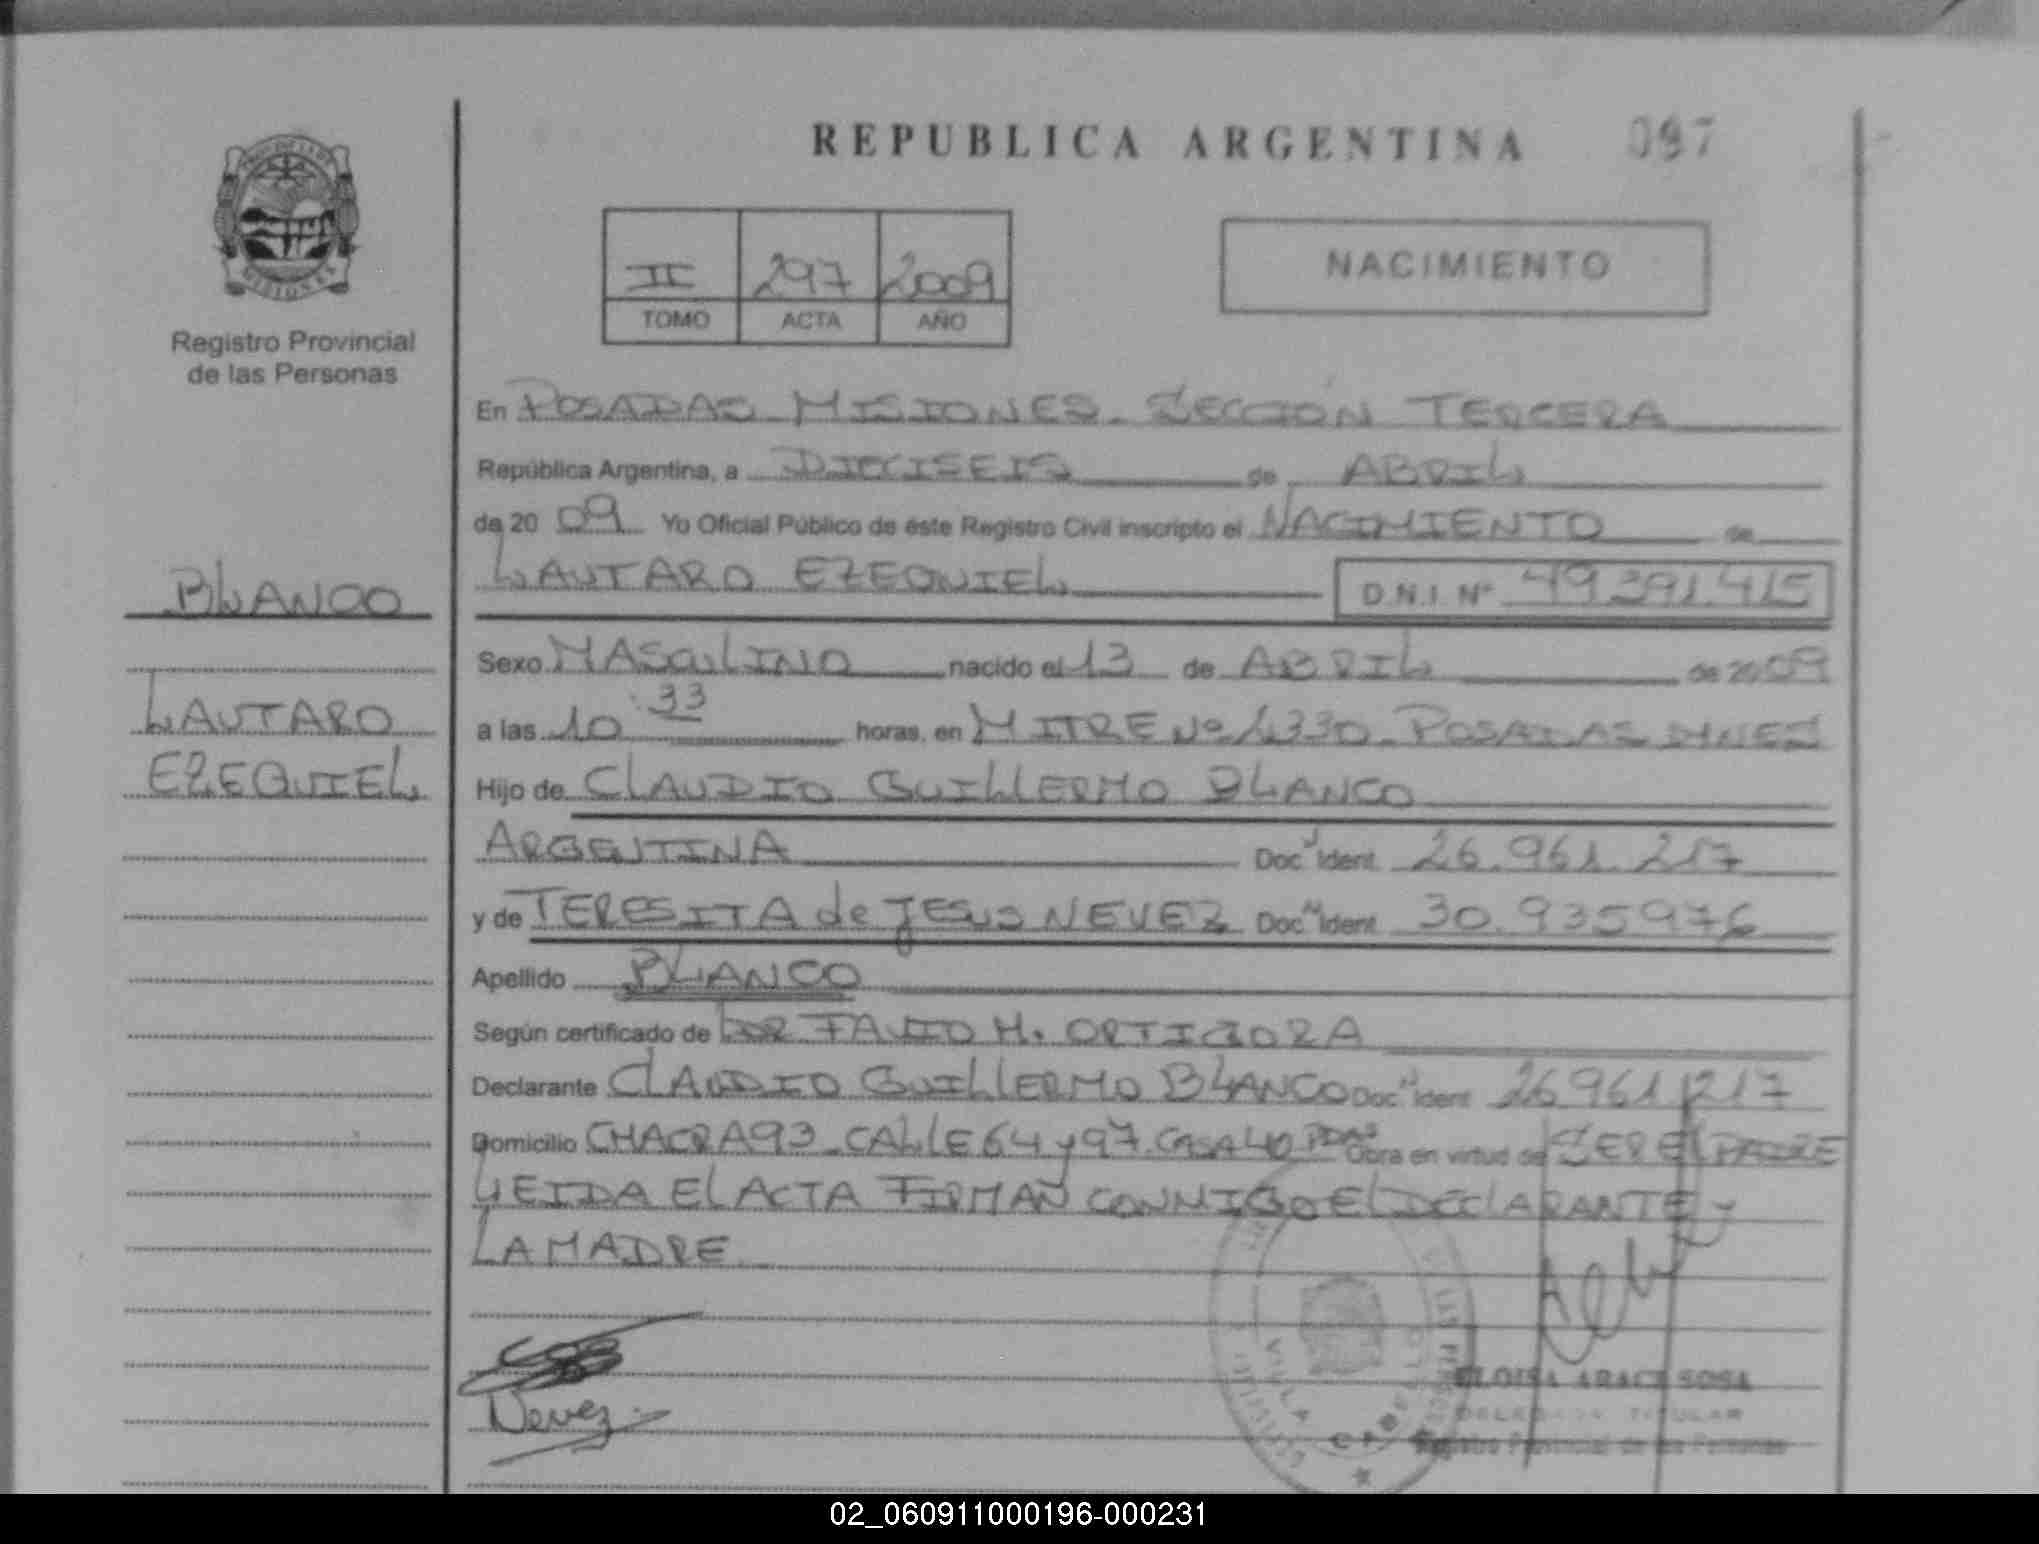 REPUBLICA ARGENTINA 097
NACIMIENTO
II 297 2009
TOMO ACTA AÑO
MISIONES
Registro Provincial
de las Personas
BLANCO
LAUTARO
EZEQUIEL
En POSADAS MISIONES. SECCION TERCERA
República Argentina, a DIECISEIS de ABRIL
de 20 09 Yo Oficial Público de éste Registro Civil inscripto el NACIMIENTO de
LAUTARO EZEQUIEL D.N.I. Nº 49.391.415
Sexo MASCULINO nacido el 13 de ABRIL de 20 09
a las 10:33 horas, en MITRE Nº 1330 - POSADAS MNES
Hijo de CLAUDIO GUILLERMO BLANCO
ARGENTINA Doc. Ident. 26.961.217
y de TERESITA de JESUS NEVEZ Doc. Ident. 30.935976
Apellido BLANCO
Según certificado de DR. M. ORTIGOZA
Declarante CLAUDIO GUILLERMO BLANCO Doc. Ident. 26961217
Domicilio CHACRA 93 - CALLE 64 y 97. CASA 40 PDAS Obra en virtud de SER El PADRE
LEIDA El ACTA FIRMAN CONMIGO El DEClARANTE y
LA MADRE
Nevez
VILLA CABELLO
ELOISA ARACI SOSA
DELEGADA TITULAR
Registro Provincial de las Personas
02_060911000196-000231